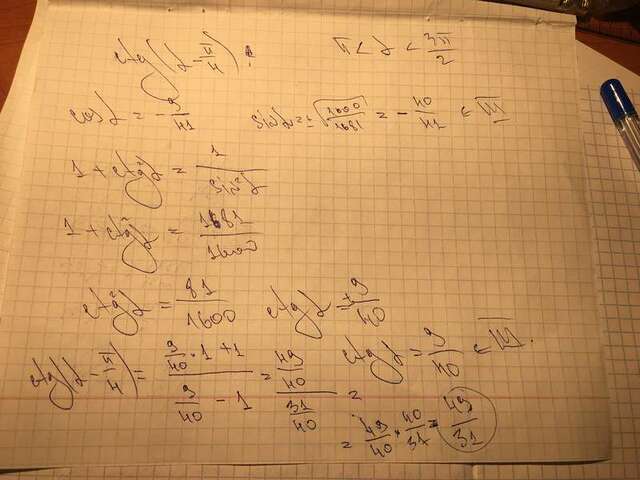 ctg(α - π/4) :   π < α < 3π/2
cos α = - 9/41   sin α = ± √(1600/1681) = - 40/41 ∈ III
1 + ctg²α = 1/sin²α
1 + ctg²α = 1681/1600
ctg²α = 81/1600   ctg α = ± 9/40
ctg α = 9/40 ∈ III.
ctg(α - π/4) = (9/40 · 1 + 1)/(9/40 - 1) = (49/40)/(31/40) =
= 49/40 · 40/31 = 49/31